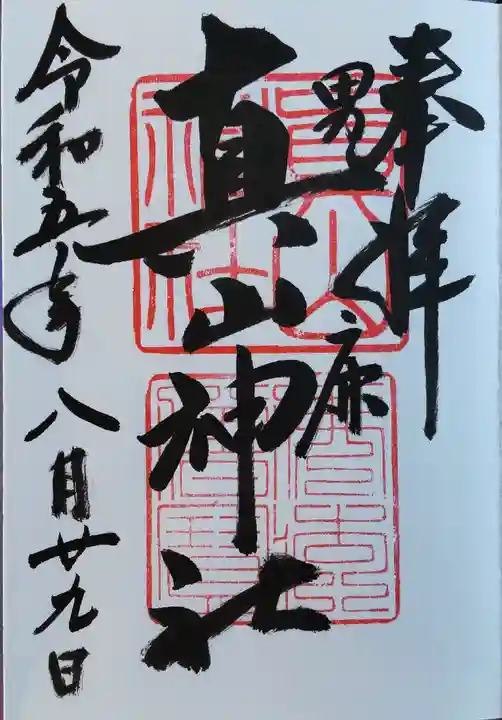 奉拝
男鹿
真山神社
令和五年八月廿九日